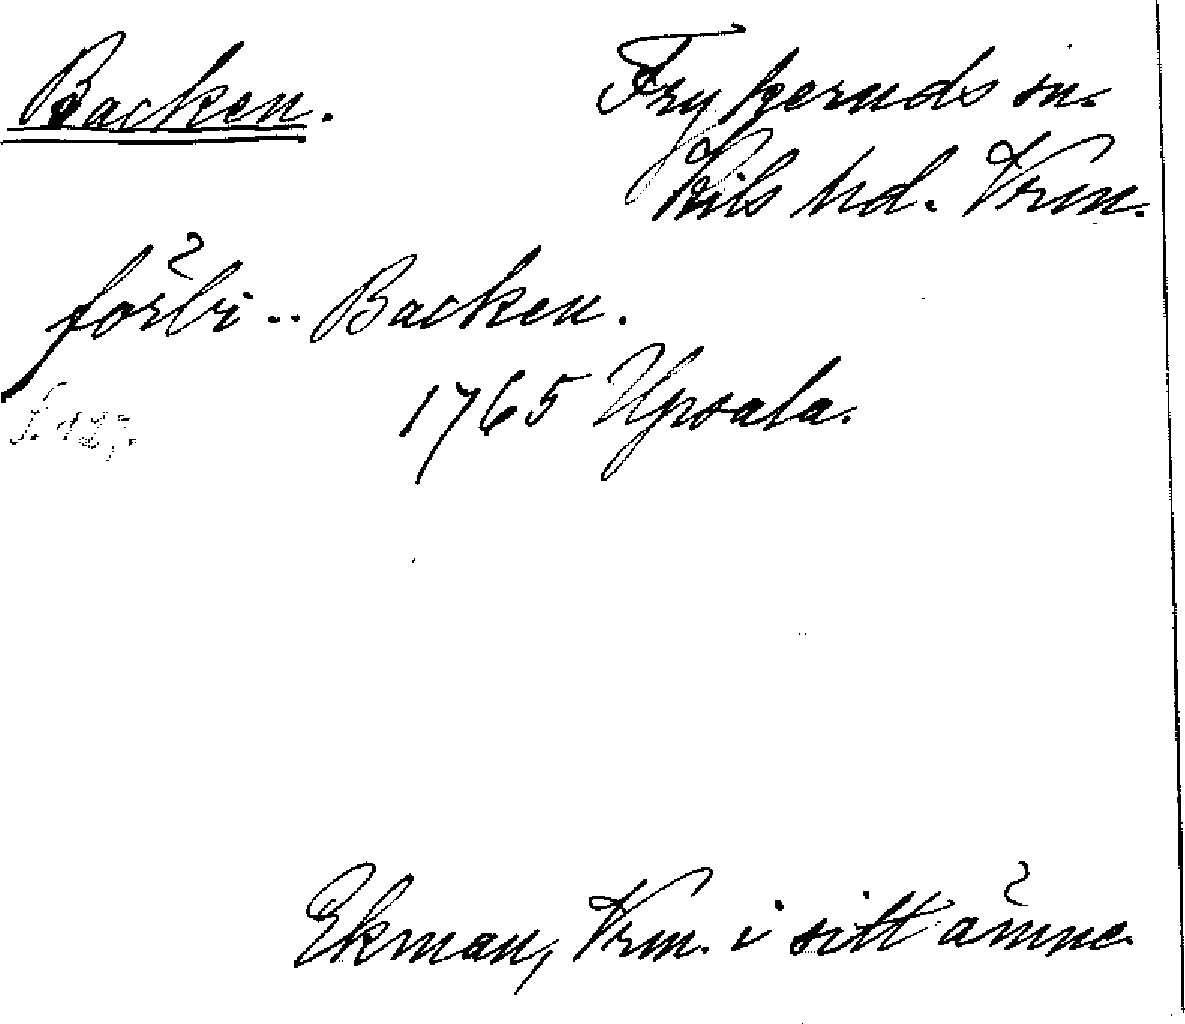 Backen.
Frykeruds sn.
Kils hd. Vrm.
förbi .. Backen.
1765 Upsala.
S. 127.
Ekman, Vrm. i sitt ämne.